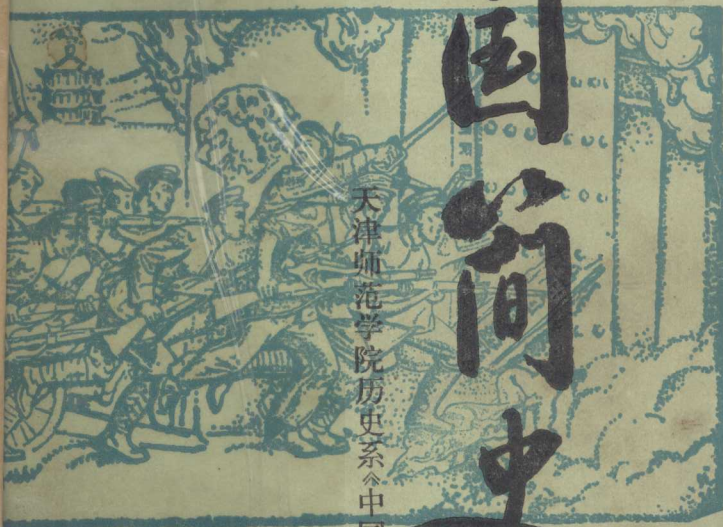 国简史
天津师范学院历史系《中国